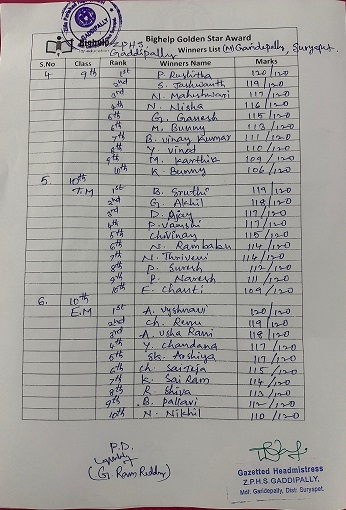 Bighelp Golden Star Award
Bighelp
Z.P.H.S. Gaddipally
Winners List (M) Garidepally, Suryapet.
S.No Class Rank Winners Name Marks
4 9th 1st P. Rushitha 120/120
2nd S. Jashwanth 119/120
3rd N. Maheshwari 117/120
4th N. Nisha 116/120
5th G. Ganesh 115/120
6th M. Bunny 113/120
7th B. Vinay Kumar 111/120
8th Y. Vinod 110/120
9th M. Karthik 109/120
10th K. Bunny 106/120
5. 10th T.M 1st B. Sruthi 119/120
2nd G. Akhil 118/120
3rd D. Ajay 117/120
4th P. Vamshi 117/120
5th Ch. Vinay 115/120
6th N. Rambabu 114/120
7th N. Thriveni 114/120
8th D. Suresh 112/120
9th P. Naresh 111/120
10th E. Chanti 109/120
6. 10th E.M 1st A. Vyshnavi 120/120
2nd Ch. Renu 119/120
3rd A. Usha Rani 118/120
4th Y. Chandana 117/120
5th SK. Arshiya 117/120
6th Ch. Sai Teja 115/120
7th K. Sai Ram 114/120
8th R. Shiva 113/120
9th B. Pallavi 112/120
10th N. Nikhil 110/120
P.D.
(G. Ram Reddy)
Gazetted Headmistress
Z.P.H.S. GADDIPALLY,
Mdl: Garidepally, Dist: Suryapet.